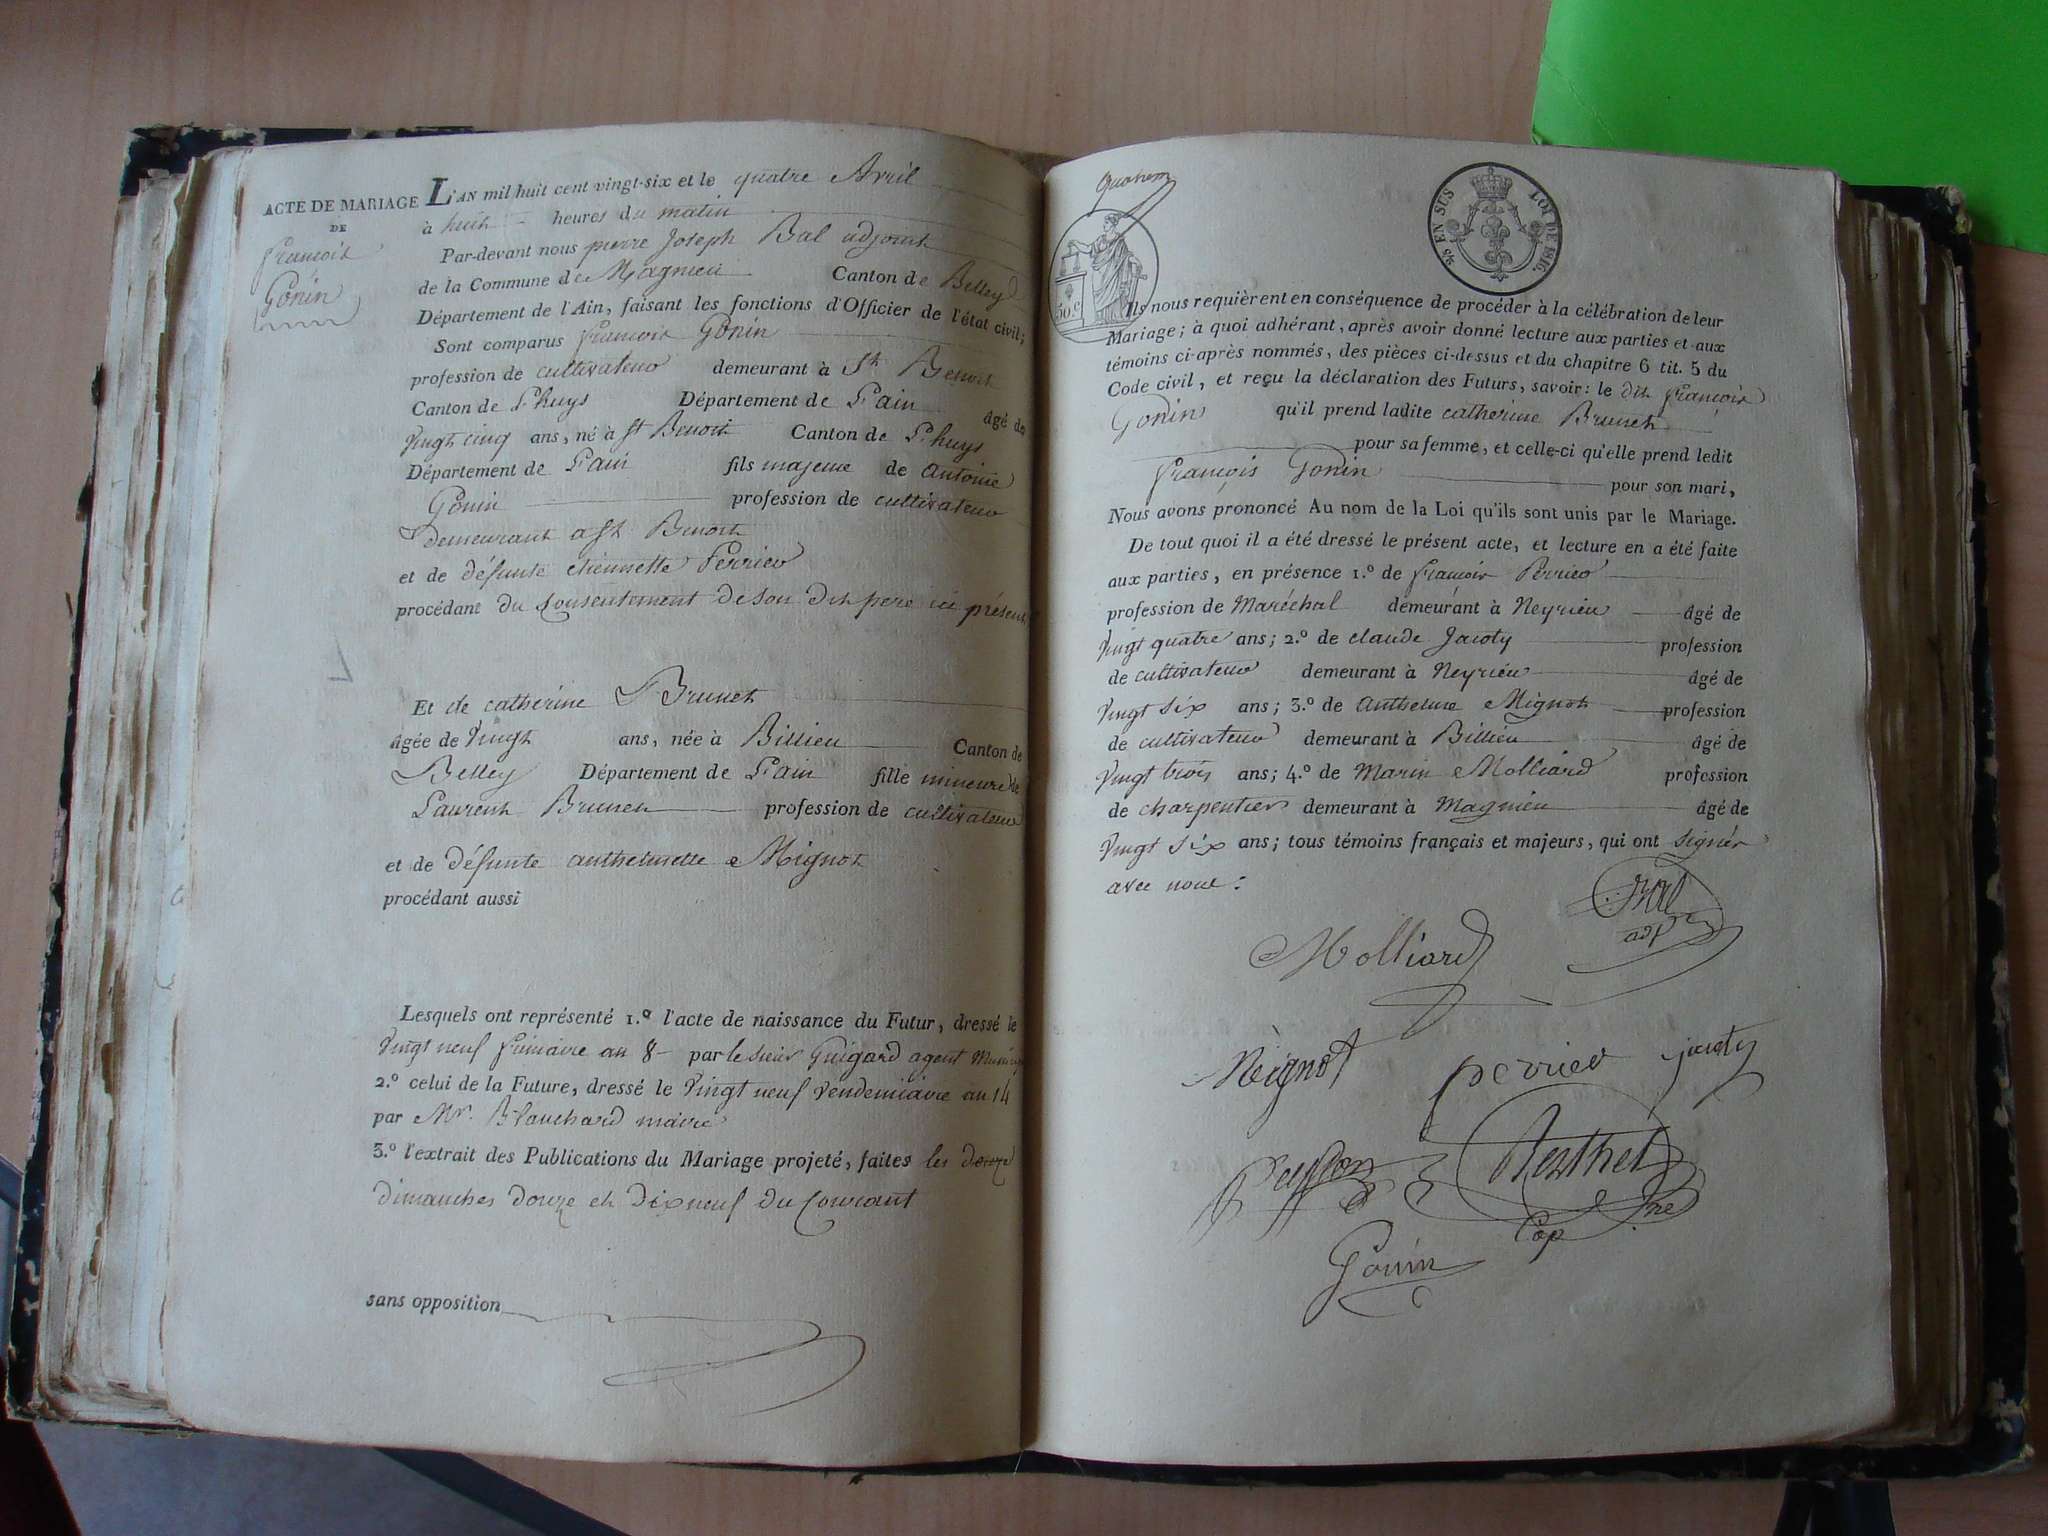 ACTE DE MARIAGE
DE
françois
Gonin
L'AN mil huit cent vingt-six et le quatre Avril
à huit heures du matin
Par-devant nous pierre Joseph Bal adjoint
de la Commune de Magnieu Canton de Belley
Département de l'Ain, faisant les fonctions d'Officier de l'état civil;
Sont comparus françois Gonin
profession de cultivateur demeurant à St Benoit
Canton de Lhuys Département de L'ain âgé de
vingt cinq ans, né à St Benoit Canton de Lhuys
Département de L'ain fils majeur de Antoine
Gonin profession de cultivateur
demeurant a St Benoit
et de défunte etiennette Perrier
procédant du Consentement de son dit pere ici présent
Et de catherine Brunet
âgée de vingt ans, née à Billieu Canton de
Belley Département de L'ain fille mineure de
Laurent Brunet profession de cultivateur
et de défunte anthelmette Mignot
procédant aussi
Lesquels ont représenté 1.º l'acte de naissance du Futur, dressé le
vingt neuf frimaire an 8 par le sieur Guigard agent
2.º celui de la Future, dressé le vingt neuf vendemiaire an 14
par Mr. Blanchard maire
3.º l'extrait des Publications du Mariage projeté, faites les douze
dimanches douze et dix neuf du Courant
sans opposition
50 c
5/5 EN SUS LOI DE 1816.
Ils nous requièrent en conséquence de procéder à la célébration de leur
Mariage; à quoi adhérant, après avoir donné lecture aux parties et aux
témoins ci-après nommés, des pièces ci-dessus et du chapitre 6 tit. 5 du
Code civil, et reçu la déclaration des Futurs, savoir: le dit françois
Gonin qu'il prend ladite catherine Brunet
pour sa femme, et celle-ci qu'elle prend ledit
françois Gonin pour son mari,
Nous avons prononcé Au nom de la Loi qu'ils sont unis par le Mariage.
De tout quoi il a été dressé le présent acte, et lecture en a été faite
aux parties, en présence 1.º de françois Perrier
profession de Maréchal demeurant à Neyrieu âgé de
vingt quatre ans; 2.º de claude Jacoty profession
de cultivateur demeurant à Neyrieu âgé de
vingt six ans; 3.º de anthelme Mignot profession
de cultivateur demeurant à Billieu âgé de
vingt trois ans; 4.º de Marin Molliard profession
de charpentier demeurant à Magnieu âgé de
vingt six ans; tous témoins français et majeurs, qui ont signés
avec nous:
Bal
adj
Molliard
Mignot perrier jacoty
Berthet
Cap ne
Gonin